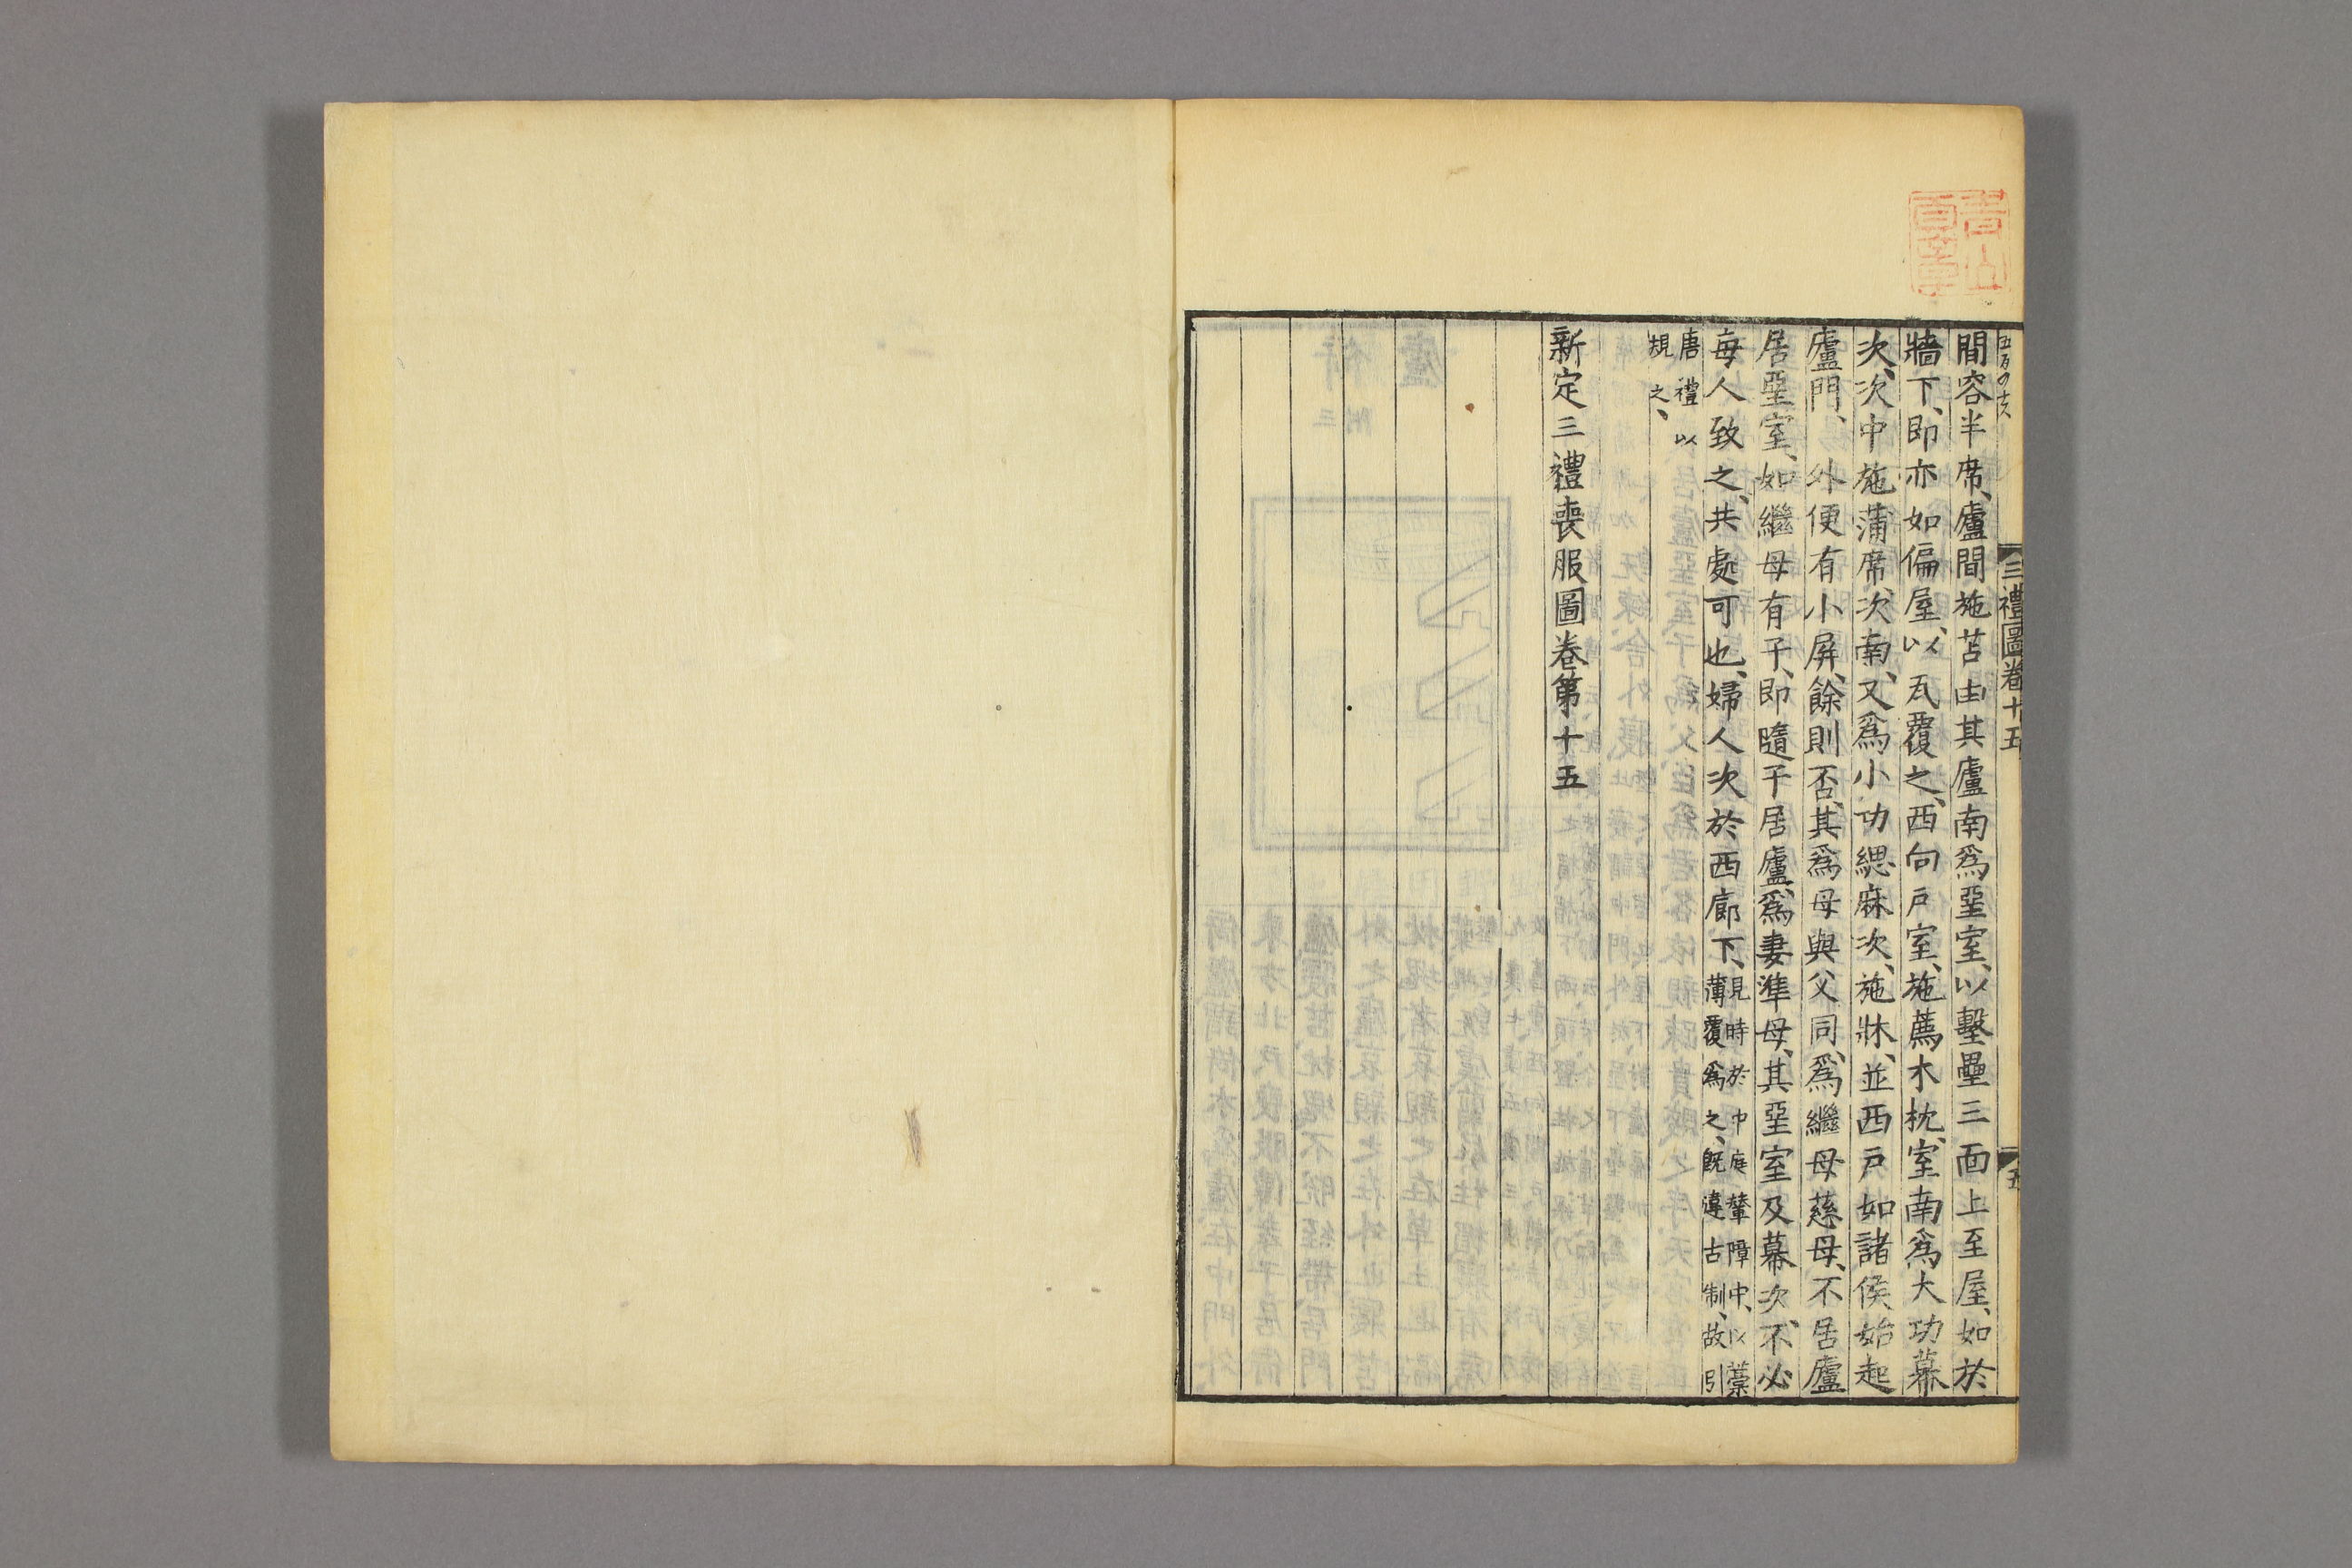 三禮圖卷十五
五
間容半席、廬間施苫由其廬南爲堊室、以墼壘三面上至屋、如於
牆下、即亦如偏屋、以瓦覆之、西向戶室、施薦木枕、室南爲大功幕
次、次中施蒲席、次南、又爲小功緦麻次、施牀、並西戶如諸侯始起
廬門、外便有小屏、餘則否、其爲母與父同、爲繼母慈母、不居廬
居堊室、如繼母有子、即隨子居廬、爲妻準母、其堊室及幕次、不必
每人致之、共處可也、婦人次於西廊下、見時於中庭輦障中、以藁
薄覆爲之、旣違古制、故引
唐禮以
規之、
新定三禮喪服圖卷第十五